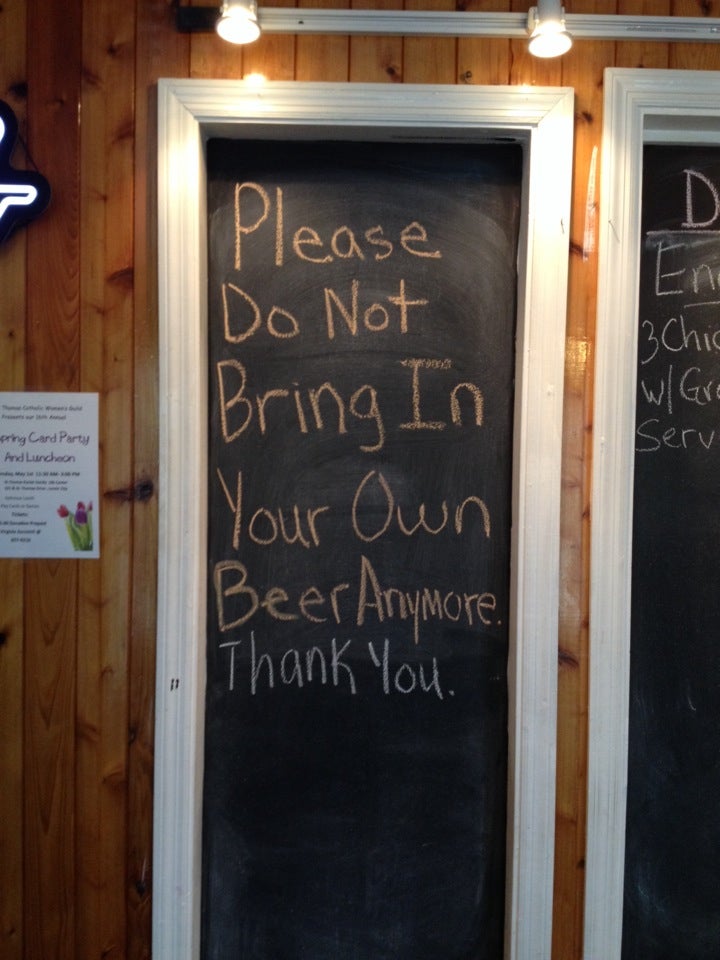 Please
Do Not
Bring In
Your Own
Beer Anymore.
Thank You.
Thomas Catholic Women's Guild
Presents our 26th Annual
Spring Card Party
And Luncheon
D
3 Chic
w/ Gr
Serv